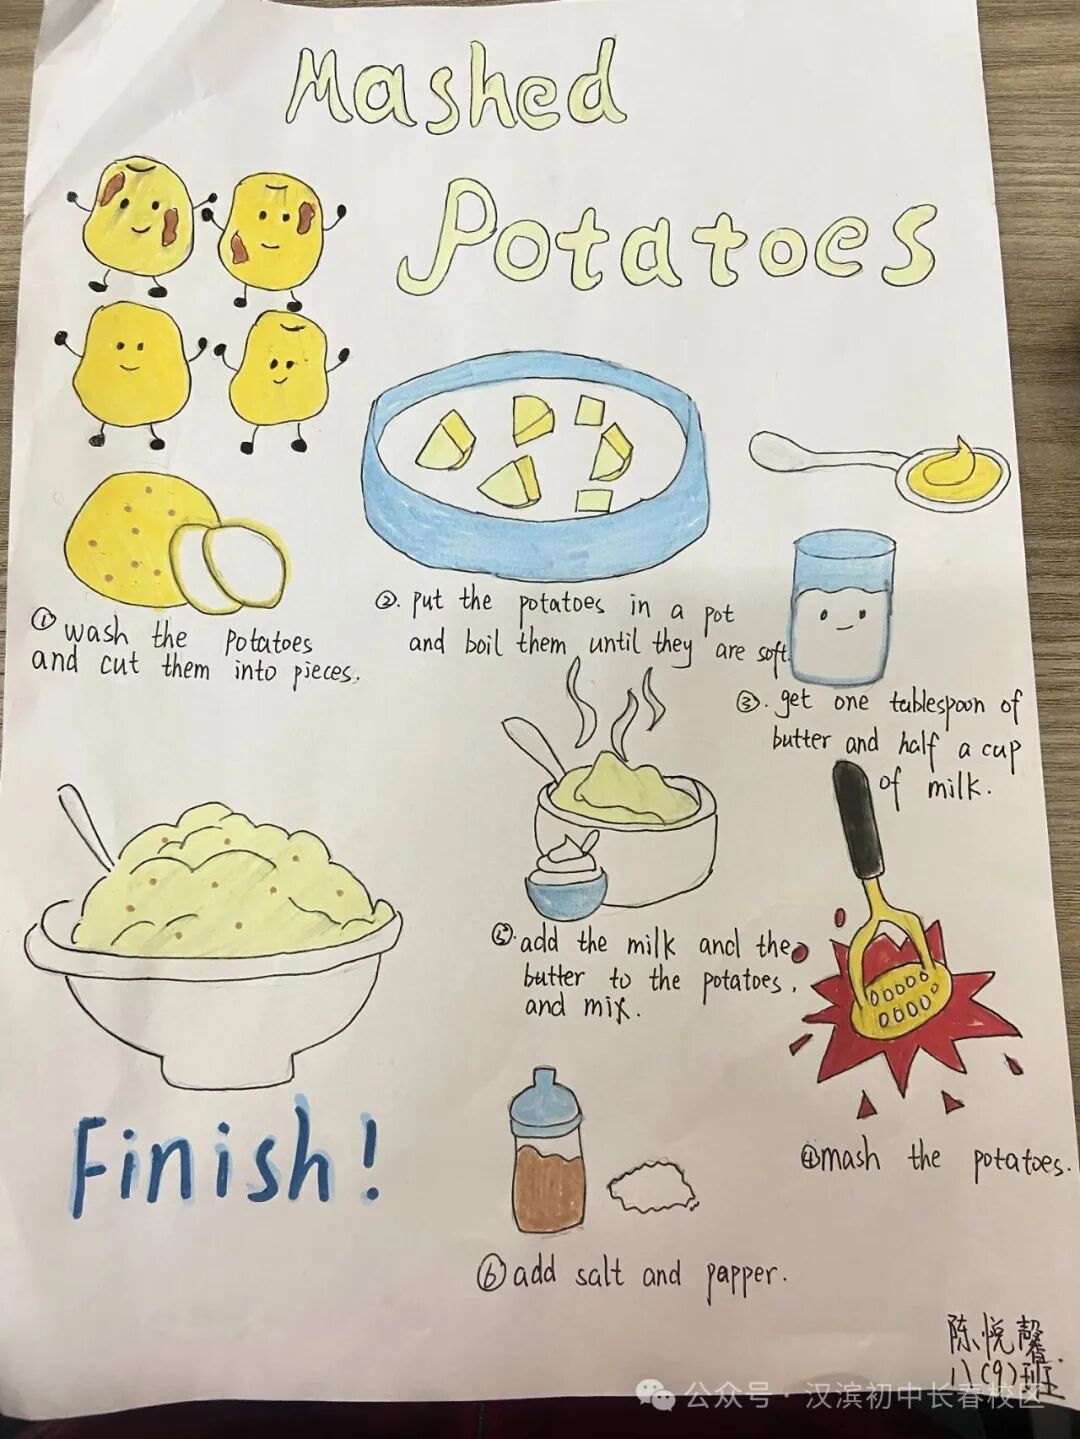 Mashed
Potatoes
① wash the potatoes
and cut them into pieces.
②. put the potatoes in a pot
and boil them until they are soft.
③. get one tablespoon of
butter and half a cup
of milk.
④mash the potatoes.
⑤. add the milk and the
butter to the potatoes,
and mix.
⑥add salt and papper.
Finish!
陈悦馨
八(9)班
公众号·汉滨初中长春校区